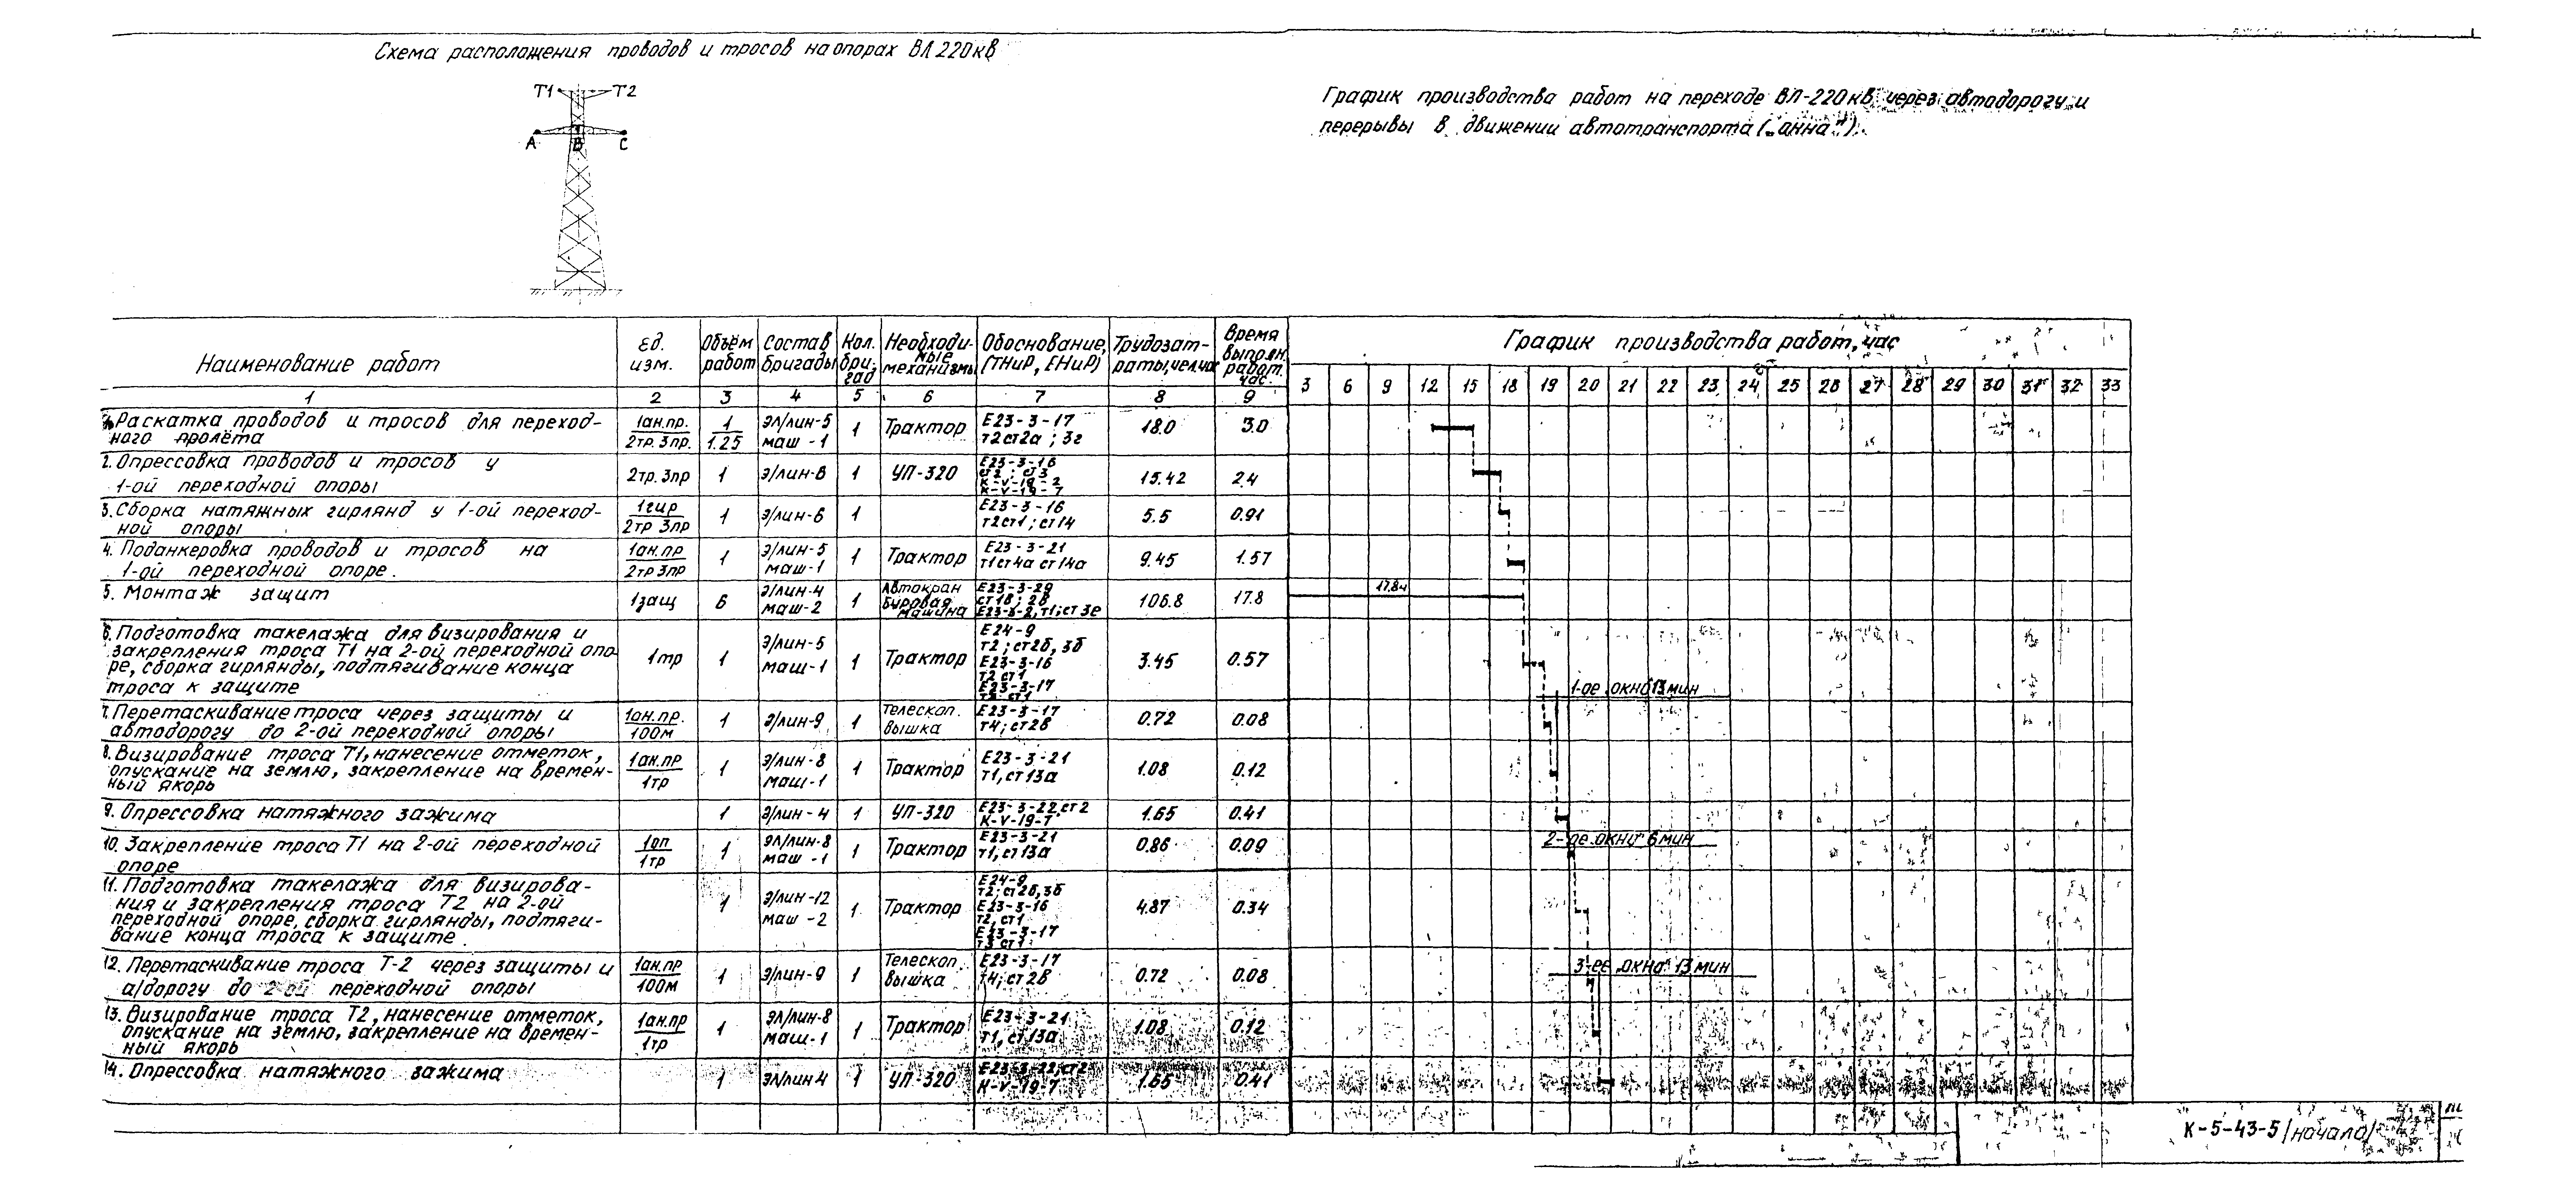 Схема расположения проводов и тросов на опорах ВЛ 220кв
Т1 Т2
А В С
График производства работ на переходе ВЛ-220кв через автодорогу и
перерывы в движении автотранспорта („окна").
Наименование работ
Ед. изм.
Объём работ
Состав бригады
Кол. бригад
Необходимые механизмы
Обоснование, (ТНиР, ЕНиР)
Трудозатраты, чел.час
Время выполн. работ. час.
График производства работ, час
1 2 3 4 5 6 7 8 9
3 6 9 12 15 18 19 20 21 22 23 24 25 26 27 28 29 30 31 32 33
1. Раскатка проводов и тросов для переход-
ного пролёта
1ан.пр. 2тр. 3пр. 1 1.25 эл/лин-5 маш-1 1 Трактор Е23-3-17 т2ст2а; 3г 18.0 3.0
2. Опрессовка проводов и тросов у
1-ой переходной опоры
2тр. 3пр 1 э/лин-6 1 УП-320 Е23-3-16 ст2; ст3 К-V-19-2 К-V-19-7 15.42 2.4
3. Сборка натяжных гирлянд у 1-ой переход-
ной опоры
1гир 2тр 3пр 1 э/лин-6 1 Е23-3-16 т2ст1; ст14 5.5 0.91
4. Поданкеровка проводов и тросов на
1-ой переходной опоре.
1ан.пр 2тр 3пр 1 э/лин-5 маш-1 1 Трактор Е23-3-21 т1ст4а ст14а 9.45 1.57
5. Монтаж защит
1защ 6 э/лин-4 маш-2 1 Автокран Буровая машина Е23-3-29 ст1в; 2в Е23-3-2, т1; ст3е 106.8 17.8
17.8ч
6. Подготовка такелажа для визирования и
закрепления троса Т1 на 2-ой переходной опо
ре, сборка гирлянды, подтягивание конца
троса к защите
1тр 1 э/лин-5 маш-1 1 Трактор Е24-9 т2; ст2б, 3б Е23-3-16 т2 ст1 Е23-3-17 т3 ст1 3.45 0.57
1-ое окно 13 мин
7. Перетаскивание троса через защиты и
автодорогу до 2-ой переходной опоры
1ан.пр. 100м 1 э/лин-9 1 Телескоп. вышка Е23-3-17 т4; ст2в 0.72 0.08
8. Визирование троса Т1, нанесение отметок,
опускание на землю, закрепление на времен-
ный якорь
1ан.пр 1тр 1 э/лин-8 маш-1 1 Трактор Е23-3-21 т1, ст13а 1.08 0.12
9. Опрессовка натяжного зажима
1 э/лин-4 1 УП-320 Е23-3-22, ст2 К-V-19-7 1.65 0.41
10. Закрепление троса Т1 на 2-ой переходной
опоре
1оп 1тр 1 эл/лин-8 маш-1 1 Трактор Е23-3-21 т1, ст13а 0.86 0.09
2-ое окно 6 мин
11. Подготовка такелажа для визирова-
ния и закрепления троса Т2 на 2-ой
переходной опоре, сборка гирлянды, подтяги-
вание конца троса к защите.
1 э/лин-12 маш-2 1 Трактор Е24-9 т2; ст2б, 3б Е23-3-16 т2, ст1 Е23-3-17 т3 ст1 4.87 0.34
12. Перетаскивание троса Т-2 через защиты и
а/дорогу до 2-ой переходной опоры
1ан.пр 100м 1 э/лин-9 1 Телескоп. вышка Е23-3-17 т4; ст2в 0.72 0.08
3-ее окно 13 мин
13. Визирование троса Т2, нанесение отметок,
опускание на землю, закрепление на времен-
ный якорь
1ан.пр 1тр 1 эл/лин-8 маш-1 1 Трактор Е23-3-21 т1, ст13а 1.08 0.12
14. Опрессовка натяжного зажима
1 эл/лин 4 1 УП-320 Е23-3-22, ст2 К-V-19-7 1.65 0.41
К-5-43-5 /начало/